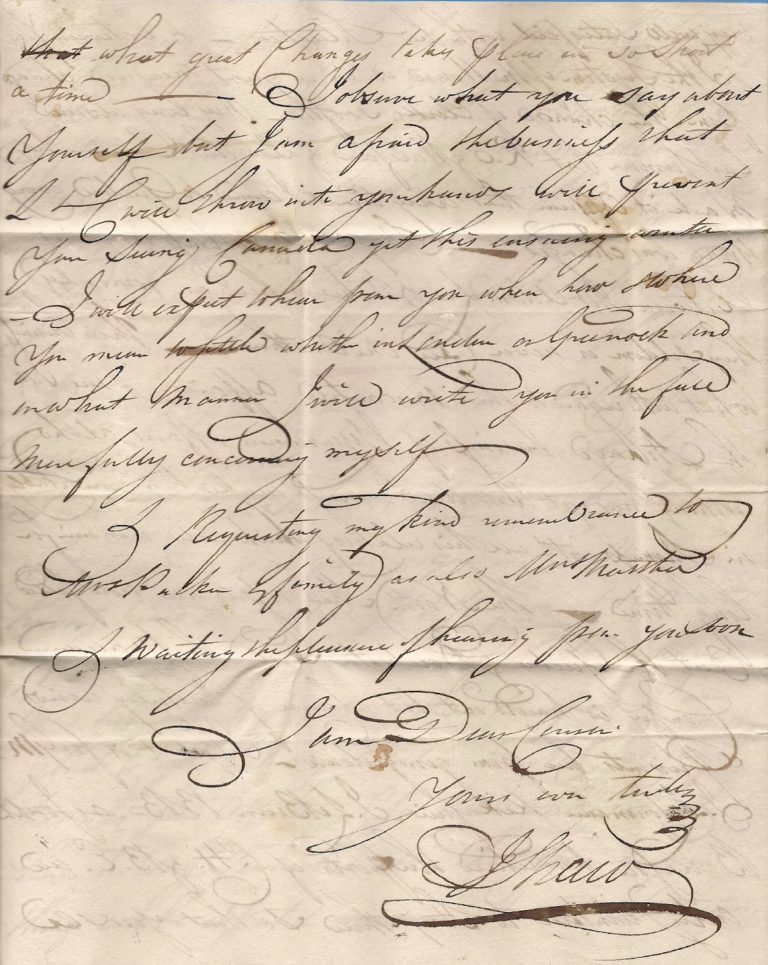 ~~that~~ what great Changes takes place in so short
a time — I observe what you say about
yourself but I am afraid the business that
I will throw into your hands will prevent
you seeing Canada yet this ensuing winter
— I will expect to hear from you when how & where
you mean whether in London or Greenock and
in what manner I will write you in the fall
more fully concerning myself
Requesting my kind remembrance to
Mrs Parker & family as also Mrs
Waiting the pleasure of hearing from you soon
I am Dear Cousin
Yours ever truly
J Shaw